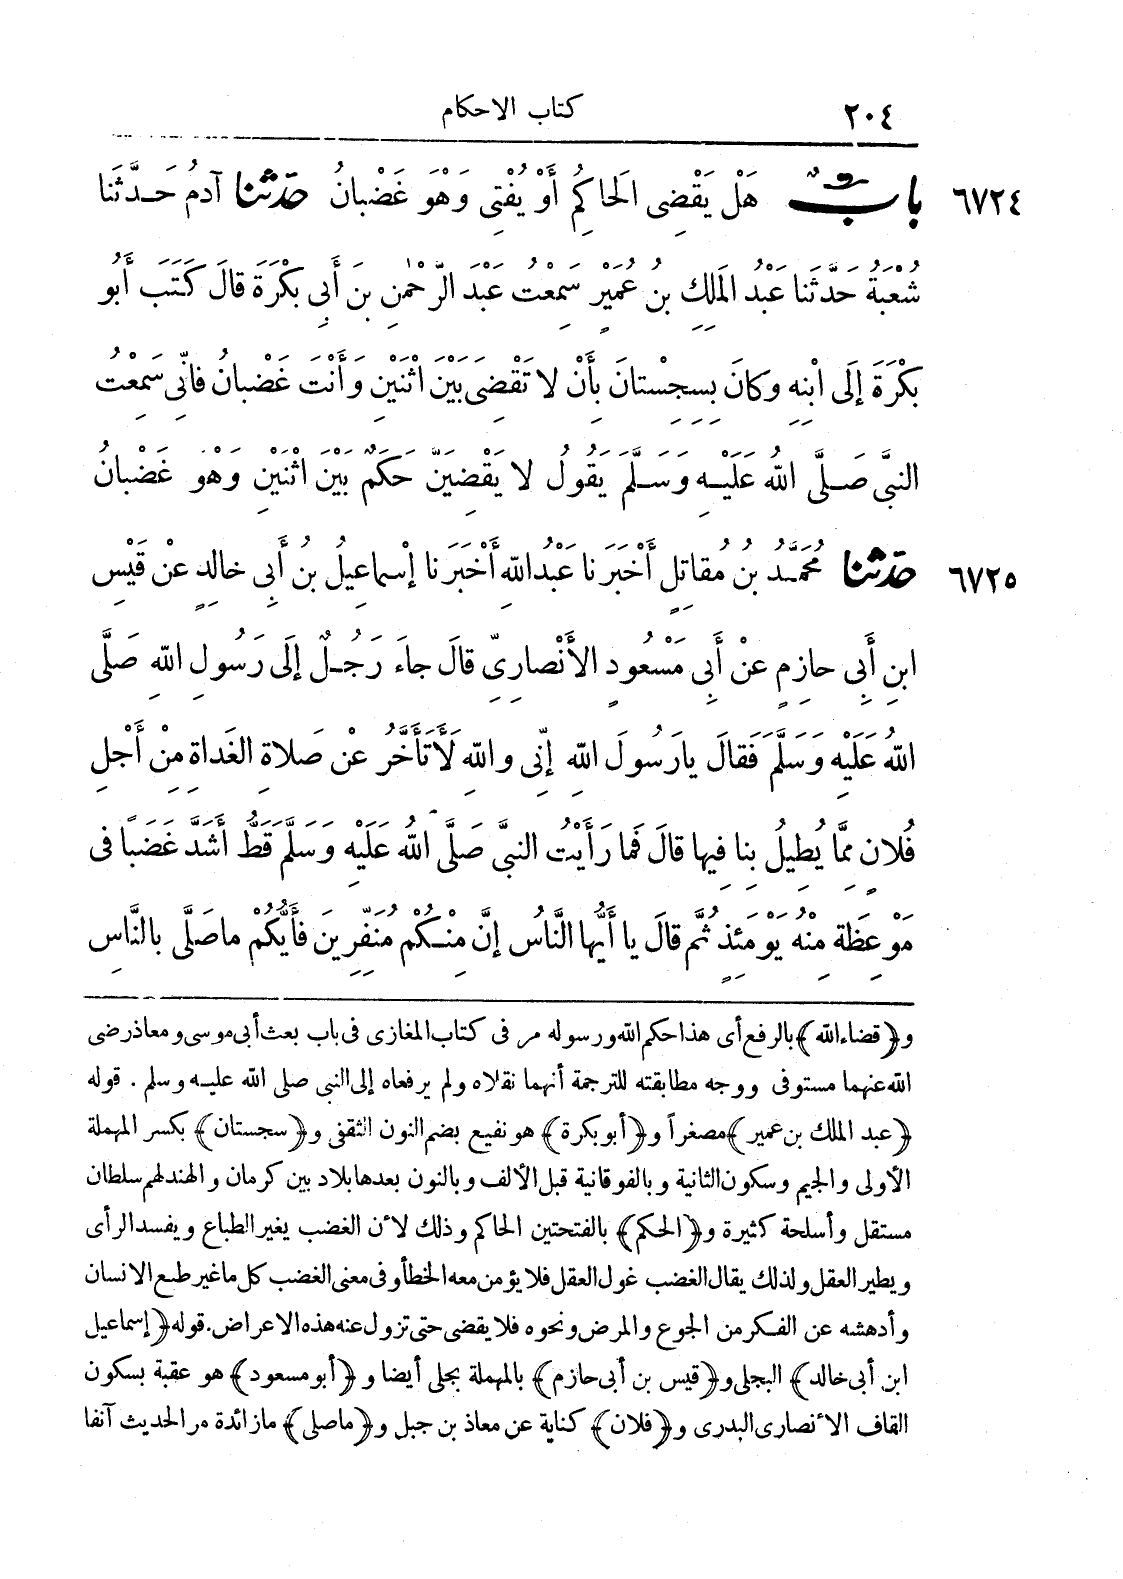 ٢٠٤ كتاب الاحكام
٦٧٢٤ بابٌ هَلْ يَقْضِى الْحَاكِمُ أَوْ يُفْتِى وَهْوَ غَضْبانُ حدثنا آدمُ حَدَّثَنَا
شُعْبَةُ حَدَّثَنا عَبْدُ المَلِكِ بنُ عُمَيْرٍ سَمِعْتُ عَبْدَ الرَّحْمٰنِ بنَ أَبِى بَكْرَةَ قالَ كَتَبَ أَبُو
بَكْرَةَ إِلَى ابْنِهِ وكانَ بِسِجِسْتانَ بأَنْ لا تَقْضِىَ بَيْنَ اثْنَيْنِ وَأَنْتَ غَضْبانُ فانِّى سَمِعْتُ
النبىَّ صَلَّى اللهُ عَلَيْهِ وَسَلَّمَ يَقُولُ لا يَقْضِيَنَّ حَكَمٌ بَيْنَ اثْنَيْنِ وَهْوَ غَضْبانُ
٦٧٢٥ حدثنا مُحَمَّدُ بنُ مُقاتِلٍ أَخْبَرَنا عَبْدُ اللهِ أَخْبَرَنا إسْماعِيلُ بنُ أَبِى خالِدٍ عنْ قَيْسِ
ابنِ أَبِى حازِمٍ عنْ أَبِى مَسْعُودٍ الأَنْصارِىِّ قالَ جاءَ رَجُلٌ إلَى رَسُولِ اللهِ صَلَّى
اللهُ عَلَيْهِ وَسَلَّمَ فَقالَ يارَسُولَ اللهِ إنِّى واللهِ لَأَتَأَخَّرُ عنْ صَلاةِ الغَداةِ مِنْ أَجْلِ
فُلانٍ مِمَّا يُطِيلُ بِنا فِيها قالَ فَما رَأَيْتُ النبىَّ صَلَّى اللهُ عَلَيْهِ وَسَلَّمَ قَطُّ أَشَدَّ غَضَبًا فى
مَوْعِظَةٍ مِنْهُ يَوْمَئِذٍ ثُمَّ قالَ يا أَيُّها النَّاسُ إنَّ مِنْكُمْ مُنَفِّرِينَ فأَيُّكُمْ ماصَلَّى بالنَّاسِ
و﴿قضاء الله﴾ بالرفع أى هذا حكم الله ورسوله مر فى كتاب المغازى فى باب بعث أبى موسى ومعاذ رضى
الله عنهما مستوفى ووجه مطابقته للترجمة أنهما نقلاه ولم يرفعاه إلى النبى صلى الله عليه وسلم . قوله
﴿عبد الملك بن عمير﴾ مصغراً و﴿أبو بكرة﴾ هو نفيع بضم النون الثقفى و﴿سجستان﴾ بكسر المهملة
الأولى والجيم وسكون الثانية وبالفوقانية قبل الألف وبالنون بعدها بلاد بين كرمان والهند لهم سلطان
مستقل وأسلحة كثيرة و﴿الحكم﴾ بالفتحتين الحاكم وذلك لأن الغضب يغير الطباع ويفسد الرأى
ويطير العقل ولذلك يقال الغضب غول العقل فلا يؤمن معه الخطأ وفى معنى الغضب كل ما غير طبع الانسان
وأدهشه عن الفكر من الجوع والمرض ونحوه فلا يقضى حتى تزول عنه هذه الاعراض. قوله ﴿إسماعيل
ابن أبى خالد﴾ البجلى و﴿قيس بن أبى حازم﴾ بالمهملة بجلى أيضا و﴿أبو مسعود﴾ هو عقبة بسكون
القاف الأنصارى البدرى و﴿فلان﴾ كناية عن معاذ بن جبل و﴿ماصلى﴾ ما زائدة مر الحديث آنفا